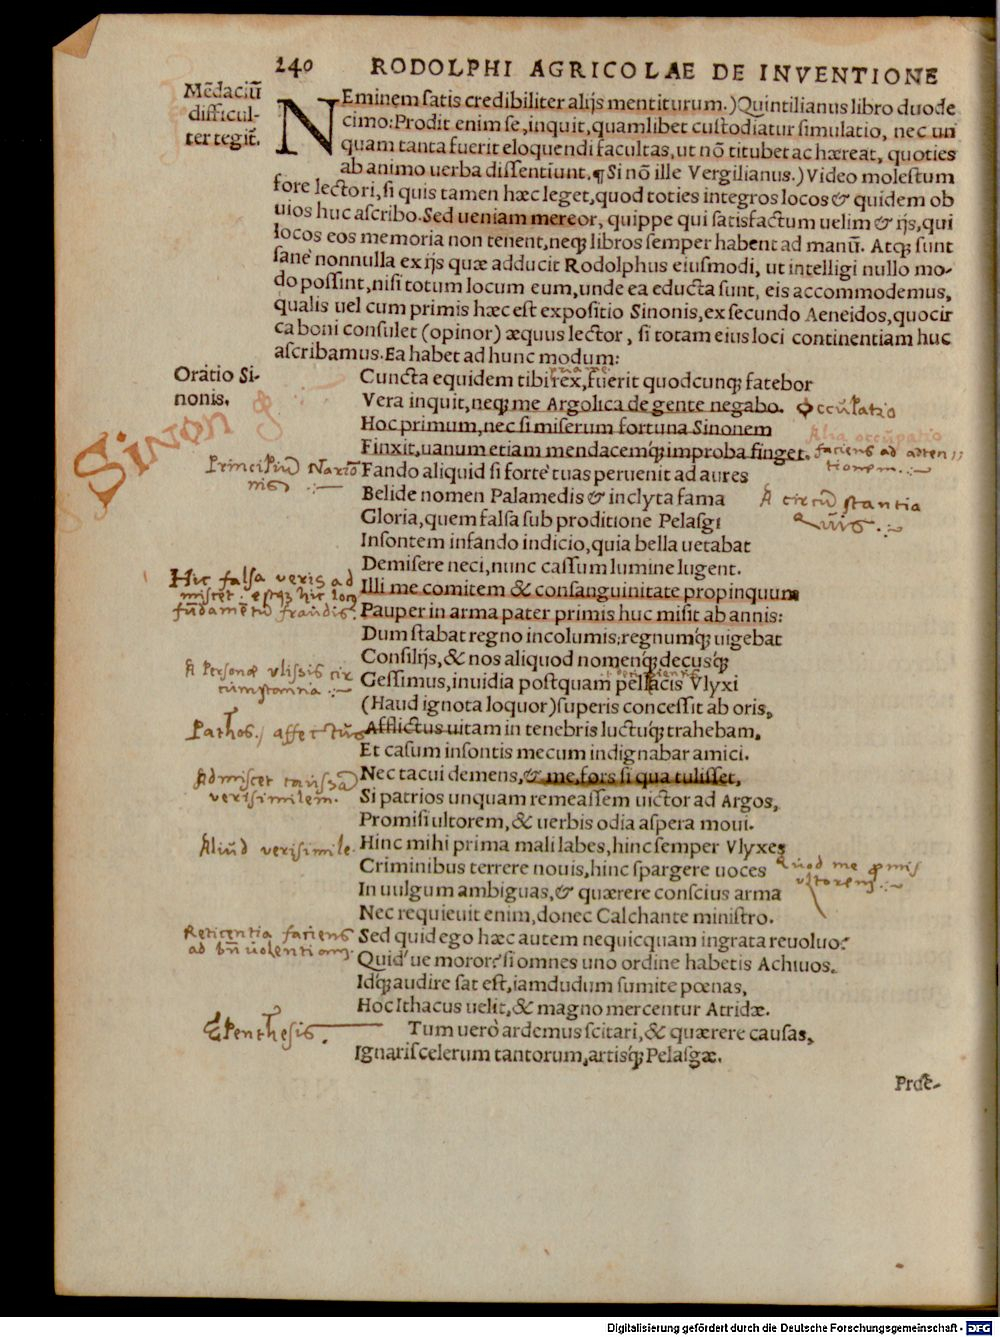 240 RODOLPHI AGRICOLAE DE INVENTIONE
Mēdaciū
difficul-
ter tegit̃.
NEminem satis credibiliter alijs mentiturum.) Quintilianus libro duode
cimo: Prodit enim se, inquit, quamlibet custodiatur simulatio, nec un
quam tanta fuerit eloquendi facultas, ut nō titubet ac hæreat, quoties
ab animo uerba dissentiunt. ¶ Si nō ille Vergilianus.) Video molestum
fore lectori, si quis tamen hæc leget, quod toties integros locos & quidem ob
uios huc ascribo. Sed ueniam mereor, quippe qui satisfactum uelim & ijs, qui
locos eos memoria non tenent, neqꝫ libros semper habent ad manū. Atqꝫ sunt
sanè nonnulla ex ijs quæ adducit Rodolphus eiusmodi, ut intelligi nullo mo-
do possint, nisi totum locum eum, unde ea educta sunt, eis accommodemus,
qualis uel cum primis hæc est expositio Sinonis, ex secundo Aeneidos, quocir
ca boni consulet (opinor) æquus lector, si totam eius loci continentiam huc
ascribamus. Ea habet ad hunc modum:
Oratio Si-
nonis.
Cuncta equidem tibi rex, fuerit quodcunqꝫ fatebor
Vera inquit, neqꝫ me Argolica de gente negabo. Occūpatio
Hoc primum, nec si miserum fortuna Sinonem
Alia occūpatio
Sinon
Finxit, uanum etiam mendacemq́ꝫ improba finget. faciens ad atten
tionem
Principiū Narrō
nis
Fando aliquid si fortè tuas peruenit ad aures
Belide nomen Palamedis & inclyta fama A circū stantia
Gloria, quem falsa sub proditione Pelasgi
Insontem infando indicio, quia bella uetabat
Demisere neci, nunc cassum lumine lugent.
Hic falsa veris ad
miscet. estqꝫ hic locꝰ
fūdamētū fraudis.
Illi me comitem & consanguinitate propinquum
Pauper in arma pater primis huc misit ab annis:
Dum stabat regno incolumis, regnumq́ꝫ uigebat
Consilijs, & nos aliquod nomenq́ꝫ decusq́ꝫ
A Personæ vlissis cir
cumstantia
Gessimus, inuidia postquam pellacis Vlyxi
(Haud ignota loquor) superis concessit ab oris,
Pathos. / affectūs
Afflictus uitam in tenebris luctuq́ꝫ trahebam,
Et casum insontis mecum indignabar amici.
Admiscet caussā
verisimilem.
Nec tacui demens, & me, fors si qua tulisset,
Si patrios unquam remeassem uictor ad Argos,
Promisi ultorem, & uerbis odia aspera moui.
Aliūd verisimile.
Hinc mihi prima mali labes, hinc semper Vlyxes
Criminibus terrere nouis, hinc spargere uoces Quod me ꝓmis
vltorem
In uulgum ambiguas, & quærere conscius arma
Nec requieuit enim, donec Calchante ministro.
Reticentia faciens
ad bn̄ uolentiam.
Sed quid ego hæc autem nequicquam ingrata reuoluo?
Quid'ue moror? si omnes uno ordine habetis Achiuos.
Idq́ꝫ audire sat est, iamdudum sumite pœnas,
Hoc Ithacus uelit, & magno mercentur Atridæ.
Epenthesis.
Tum uerò ardemus scitari, & quærere causas,
Ignari scelerum tantorum, artisq́ꝫ Pelasgæ.
Prose-
Digitalisierung gefördert durch die Deutsche Forschungsgemeinschaft - DFG